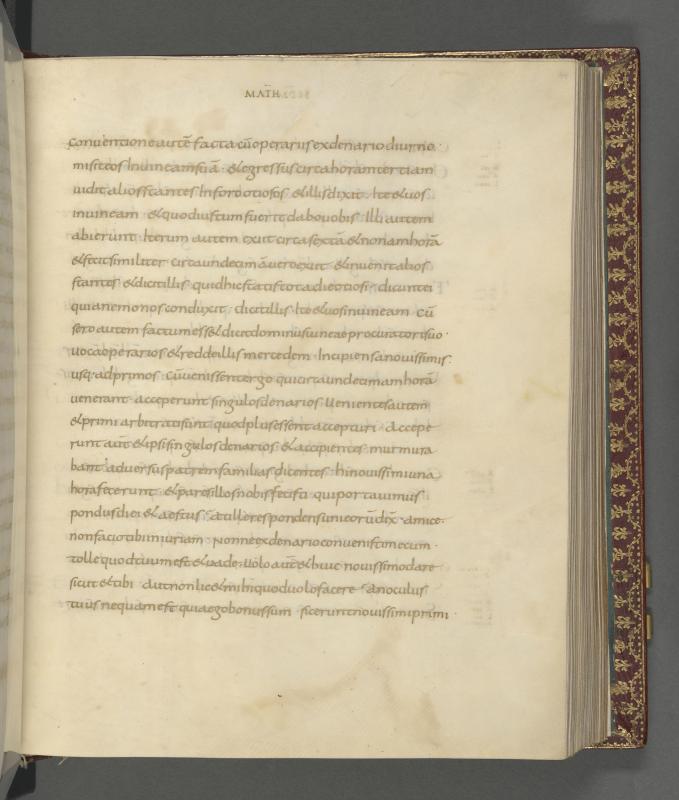 MATH
Conventione autē facta cū operariis ex denario diurno·
misit eos In uineam suā · & egressus circa horam tertiam
uidit alios stantes In foro otiosos & illis dixit · Ite & uos
in uineam · & quod iustum fuerit dabo uobis · Illi autem
abierunt · Iterum autem exiit circa sextā & nonam horā
& fecit similiter · circa undecimā uero exiit · & inuenit alios
stantes · & dicit illis · quid hic statis tota die otiosi · dicunt ei
quia nemo nos conduxit · dicit illis · Ite & uos in uineam · Cū
sero autem factum ess& dicit dominus uineae procuratori suo·
uoca operarios & redde illis mercedem · Incipiens a nouissimis
usq· ad primos · Cū uenissent ergo qui circa undecimam horā
uenerant · acceperunt singulos denarios · Uenientes autem
& primi arbitrati sunt quod plus essent accepturi · Accepe
runt aūt & ipsi singulos denarios · & accipientes murmura
bant aduersus patrem familias dicentes · hi nouissimi una
hora fecerunt · & pares illos nobis fecisti · qui portauimus
pondus diei & aestus · at ille respondens uni eorū dix̄ · Amice·
non facio tibi iniuriam · Nonne ex denario conuenisti mecum ·
tolle quod tuum est & uade · Uolo aūt & huic nouissimo dare
sicut & tibi · Aut non lic& mihi quod uolo facere · An oculus
tuus nequam est quia ego bonus sum · sic erunt nouissimi primi ·